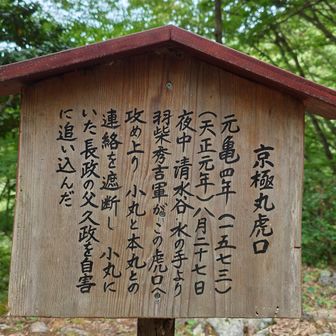 京極丸虎口
元亀四年(一五七三)
(天正元年)八月二十七日
夜中 清水谷 水の手より
羽柴秀吉軍がこの虎口へ
攻め上り 小丸と本丸との
連絡を遮断し 小丸に
いた長政の父久政を自害
に追い込んだ